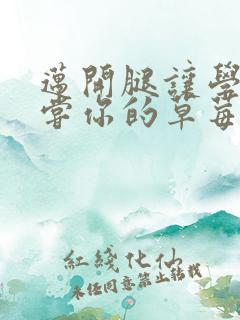 邁開腿讓學
嘗你的草莓
紅綫化仙
未經同意禁止轉載